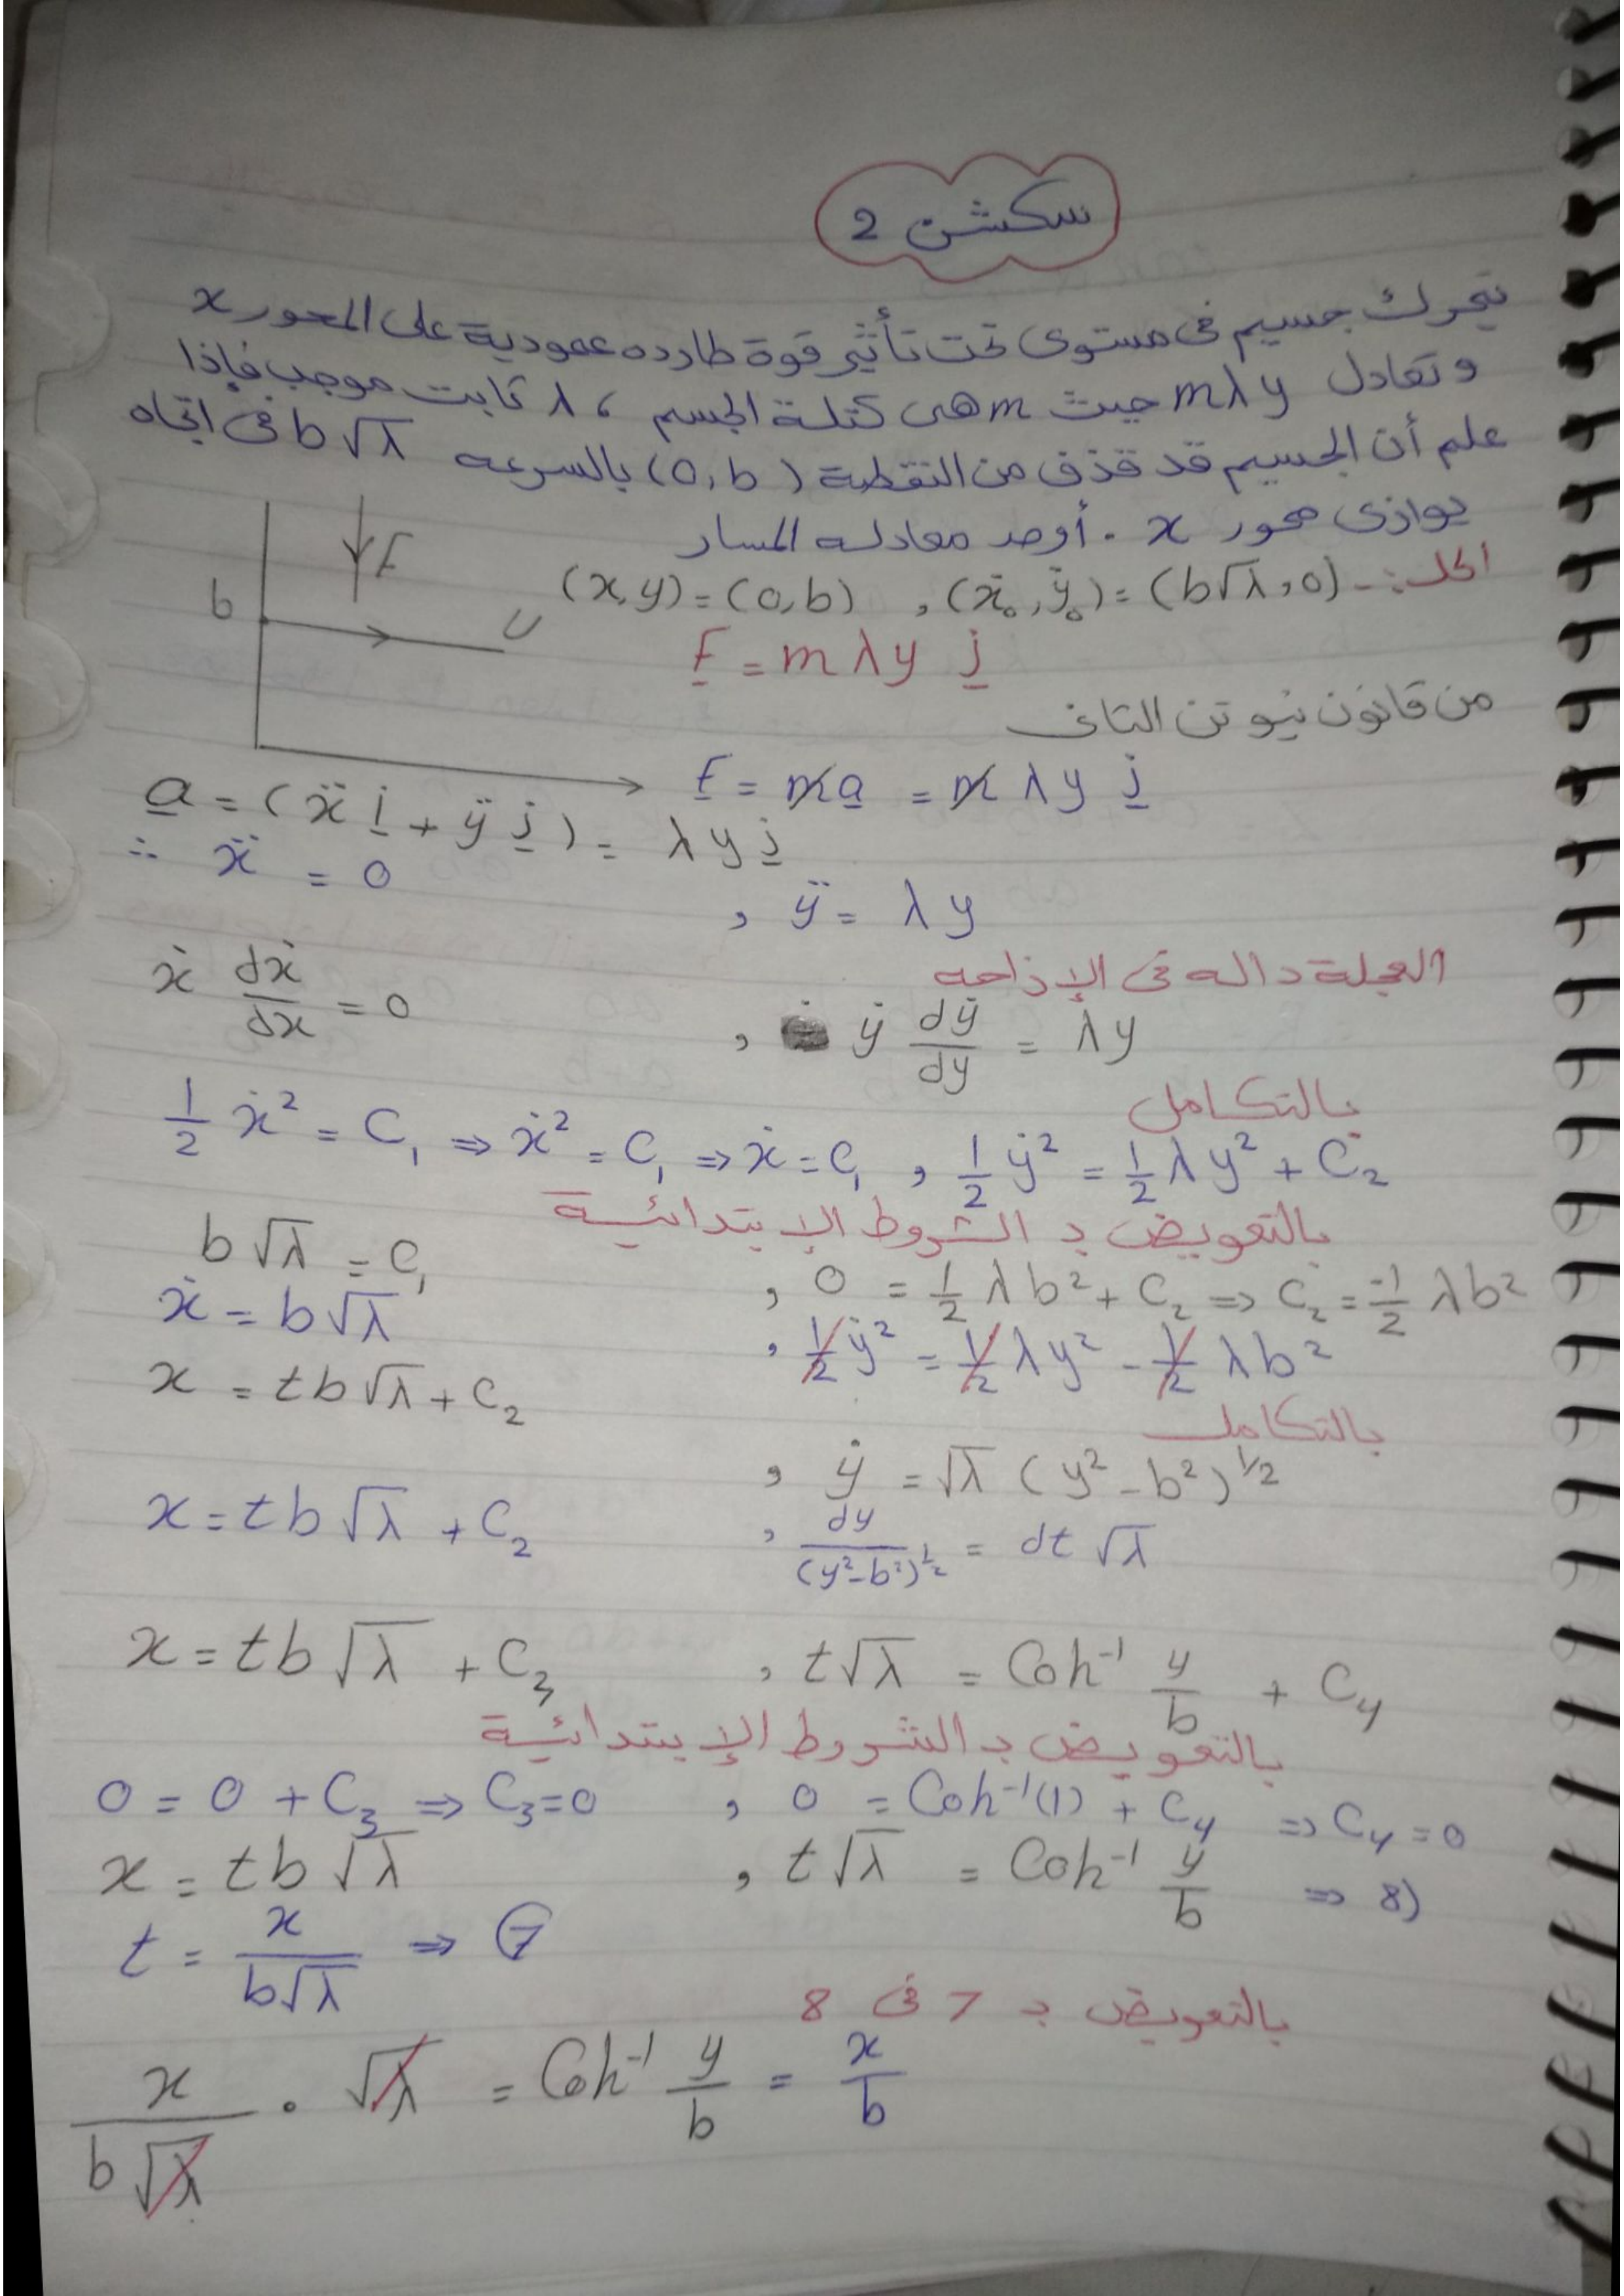 سكشن 2
يتحرك جسيم فى مستوى تحت تأثير قوة طارده عمودية على المحور x
وتعادل mλy حيث m هى كتلة الجسم ، λ ثابت موجب فإذا
علم أن الجسيم قد قذف من النقطة (0, b) بالسرعه b√λ فى اتجاه
يوازى محور x . أوجد معادله المسار
الحل :- (x,y) = (0,b) , (ẋ₀, ẏ₀) = (b√λ, 0)
F
b
U
F = mλy j
من قانون نيوتن الثانى
F = ma = mλy j
a = (ẍ i + ÿ j) = λy j
∴ ẍ = 0 , ÿ = λy
العجلة داله فى الإزاحه
ẋ dẋ/dx = 0 , ẏ dẏ/dy = λy
بالتكامل
1/2 ẋ² = C₁ ⇒ ẋ² = C₁ ⇒ ẋ = C₁ , 1/2 ẏ² = 1/2 λy² + C₂
بالتعويض بـ الشروط الإبتدائية
b√λ = C₁ , 0 = 1/2 λb² + C₂ ⇒ C₂ = -1/2 λb²
ẋ = b√λ , 1/2 ẏ² = 1/2 λy² - 1/2 λb²
بالتكامل
x = tb√λ + C₂ , ẏ = √λ (y² - b²)^1/2
x = tb√λ + C₂ , dy/(y²-b²)^1/2 = dt √λ
x = tb√λ + C₃ , t√λ = Coh⁻¹ y/b + C₄
بالتعويض بـ الشروط الإبتدائية
0 = 0 + C₃ ⇒ C₃=0 , 0 = Coh⁻¹(1) + C₄ ⇒ C₄ = 0
x = tb√λ , t√λ = Coh⁻¹ y/b ⇒ 8)
t = x/b√λ ⇒ 7
بالتعويض بـ 7 فى 8
x/b√λ . √λ = Coh⁻¹ y/b = x/b